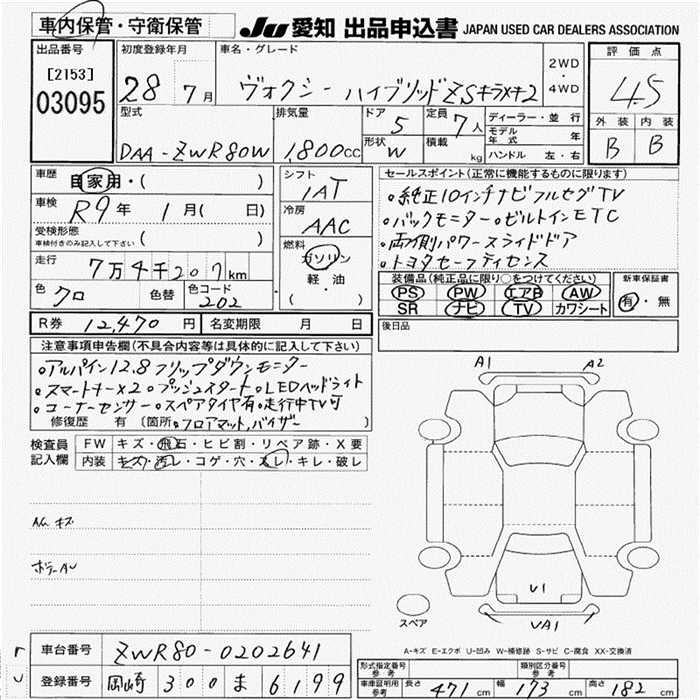 車内保管・守衛保管
JU 愛知 出品申込書 JAPAN USED CAR DEALERS ASSOCIATION
出品番号
[2153]
03095
初度登録年月
28 7月
車名・グレード
ヴォクシー ハイブリッドZSキラメキ2
2WD
・
4WD
評価点
4.5
外装 内装
B B
型式
DAA-ZWR80W
排気量
1,800cc
ドア
5
形状
W
定員
7人
積載 kg
ディーラー・並行
モデル年式 年
ハンドル 左・右
車歴
自家用・( )
車検
R9年 1月( 日)
受検形態
車検付きのみ記入して下さい ( )
走行
7万4千207km
色
クロ
色替
色コード
202
シフト
IAT
冷房
AAC
燃料
ガソリン
軽・油
( )
セールスポイント(正常に機能するものに限ります)
。純正10インチナビフルセグTV
。バックモニター。ビルトインETC
。両側パワースライドドア
。トヨタセーフティセンス
装備品(純正品に限り○をつけてください)
PS PW エアB AW
SR ナビ TV カワシート
新車保証書
有・無
後日品
R券 12,470円
名変期限 月 日
注意事項申告欄(不具合内容等は具体的に記入して下さい)
。アルパイン12.8フリップダウンモニター
。スマートキーX2。プッシュスタート。LEDヘッドライト
。コーナーセンサー。スペアタイヤ有。走行中TV可
修復歴 有 [箇所 。フロアマット,バイザー ]
検査員記入欄
FW キズ・飛石・ヒビ割・リペア跡・X要
内装 キズ・汚レ・コゲ・穴・スレ・キレ・破レ
A1 A2
U1
UA1
スペア
A-キズ E-エクボ U-凹み W-補修跡 S-サビ C-腐食 XX-交換済
車台番号 ZWR80-0202641
登録番号 岡崎 300 ま 6199
型式指定番号 参考
類別区分番号 参考
車庫証明用 参考 長さ 471cm 幅 173cm 高さ 182cm